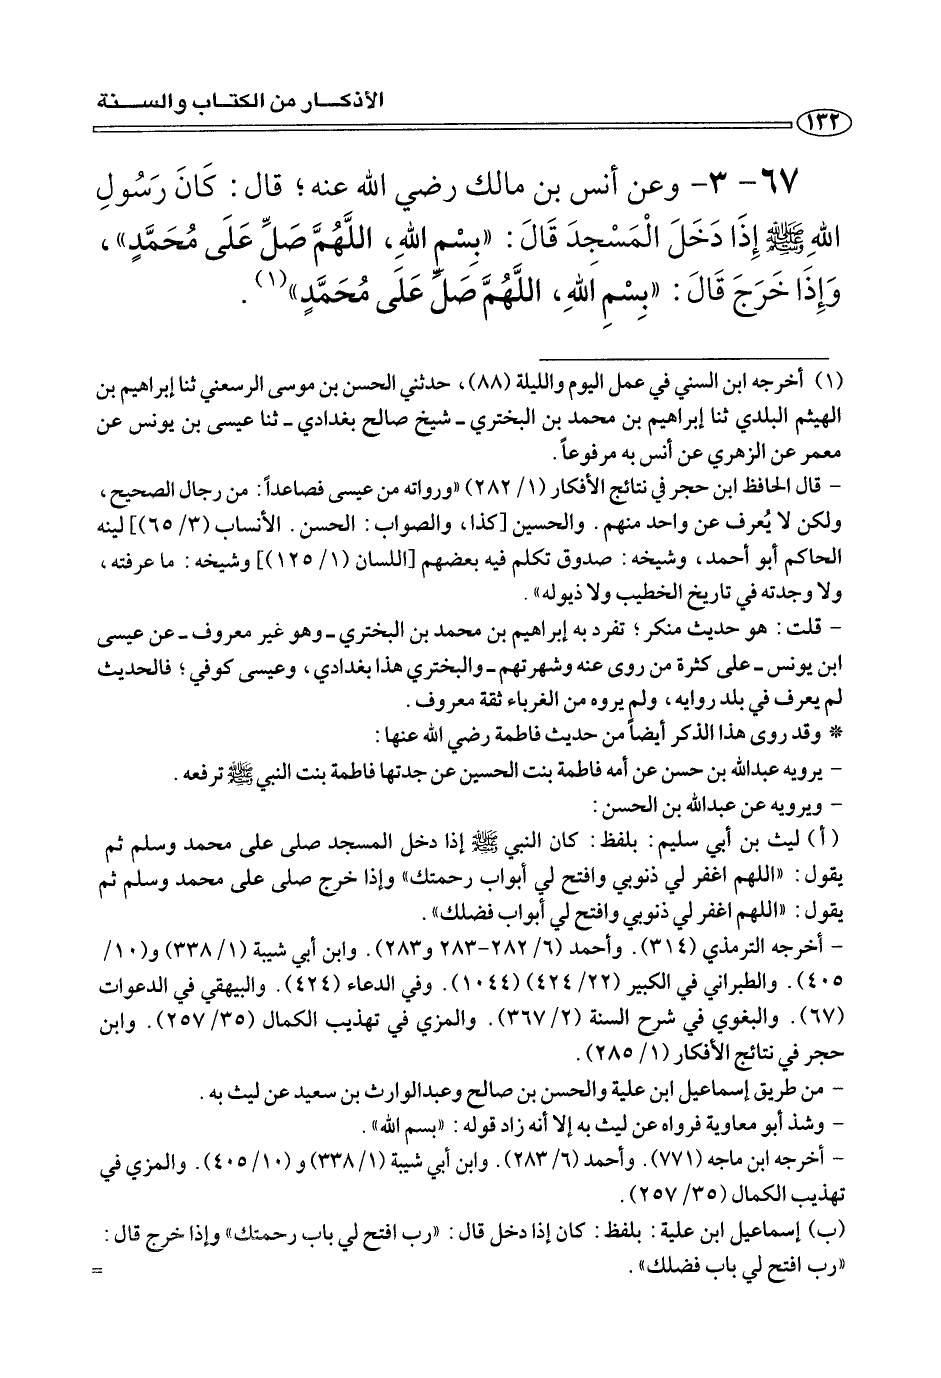 الأذكار من الكتاب والسنة
١٣٢
٦٧- ٣- وعن أنس بن مالك رضي الله عنه؛ قال: كَانَ رَسُولِ
اللهِ ﷺ إِذَا دَخَلَ الْمَسْجِدَ قَالَ: «بِسْمِ اللهِ، اللَّهُمَّ صَلِّ عَلَى مُحَمَّدٍ»،
وَإِذَا خَرَجَ قَالَ: «بِسْمِ اللهِ، اللَّهُمَّ صَلِّ عَلَى مُحَمَّدٍ»(١).
(١) أخرجه ابن السني في عمل اليوم والليلة (٨٨)، حدثني الحسن بن موسى الرسعني ثنا إبراهيم بن
الهيثم البلدي ثنا إبراهيم بن محمد بن البختري ـ شيخ صالح بغدادي ـ ثنا عيسى بن يونس عن
معمر عن الزهري عن أنس به مرفوعاً.
- قال الحافظ ابن حجر في نتائج الأفكار (١/ ٢٨٢) «ورواته من عيسى فصاعداً: من رجال الصحيح،
ولكن لا يُعرف عن واحد منهم. والحسين [كذا، والصواب: الحسن. الأنساب (٣/ ٦٥)] لينه
الحاكم أبو أحمد، وشيخه: صدوق تكلم فيه بعضهم [اللسان (١/ ١٢٥)] وشيخه: ما عرفته،
ولا وجدته في تاريخ الخطيب ولا ذيوله».
- قلت: هو حديث منكر؛ تفرد به إبراهيم بن محمد بن البختري ـ وهو غير معروف ـ عن عيسى
ابن يونس ـ على كثرة من روى عنه وشهرتهم ـ والبختري هذا بغدادي، وعيسى كوفي؛ فالحديث
لم يعرف في بلد روايه، ولم يروه من الغرباء ثقة معروف.
* وقد روى هذا الذكر أيضاً من حديث فاطمة رضي الله عنها:
- يرويه عبدالله بن حسن عن أمه فاطمة بنت الحسين عن جدتها فاطمة بنت النبي ﷺ ترفعه.
- ويرويه عن عبدالله بن الحسن:
(أ) ليث بن أبي سليم: بلفظ: كان النبي ﷺ إذا دخل المسجد صلى على محمد وسلم ثم
يقول: «اللهم اغفر لي ذنوبي وافتح لي أبواب رحمتك» وإذا خرج صلى على محمد وسلم ثم
يقول: «اللهم اغفر لي ذنوبي وافتح لي أبواب فضلك».
- أخرجه الترمذي (٣١٤). وأحمد (٦/ ٢٨٢-٢٨٣ و٢٨٣). وابن أبي شيبة (١/ ٣٣٨) و(١٠/
٤٠٥). والطبراني في الكبير (٢٢/ ٤٢٤) (١٠٤٤). وفي الدعاء (٤٢٤). والبيهقي في الدعوات
(٦٧). والبغوي في شرح السنة (٢/ ٣٦٧). والمزي في تهذيب الكمال (٣٥/ ٢٥٧). وابن
حجر في نتائج الأفكار (١/ ٢٨٥).
- من طريق إسماعيل ابن علية والحسن بن صالح وعبدالوارث بن سعيد عن ليث به.
- وشذ أبو معاوية فرواه عن ليث به إلا أنه زاد قوله: «بسم الله».
- أخرجه ابن ماجه (٧٧١). وأحمد (٦/ ٢٨٣). وابن أبي شيبة (١/ ٣٣٨) و (١٠/ ٤٠٥). والمزي في
تهذيب الكمال (٣٥/ ٢٥٧).
(ب) إسماعيل ابن علية: بلفظ: كان إذا دخل قال: «رب افتح لي باب رحمتك» وإذا خرج قال:
«رب افتح لي باب فضلك». =